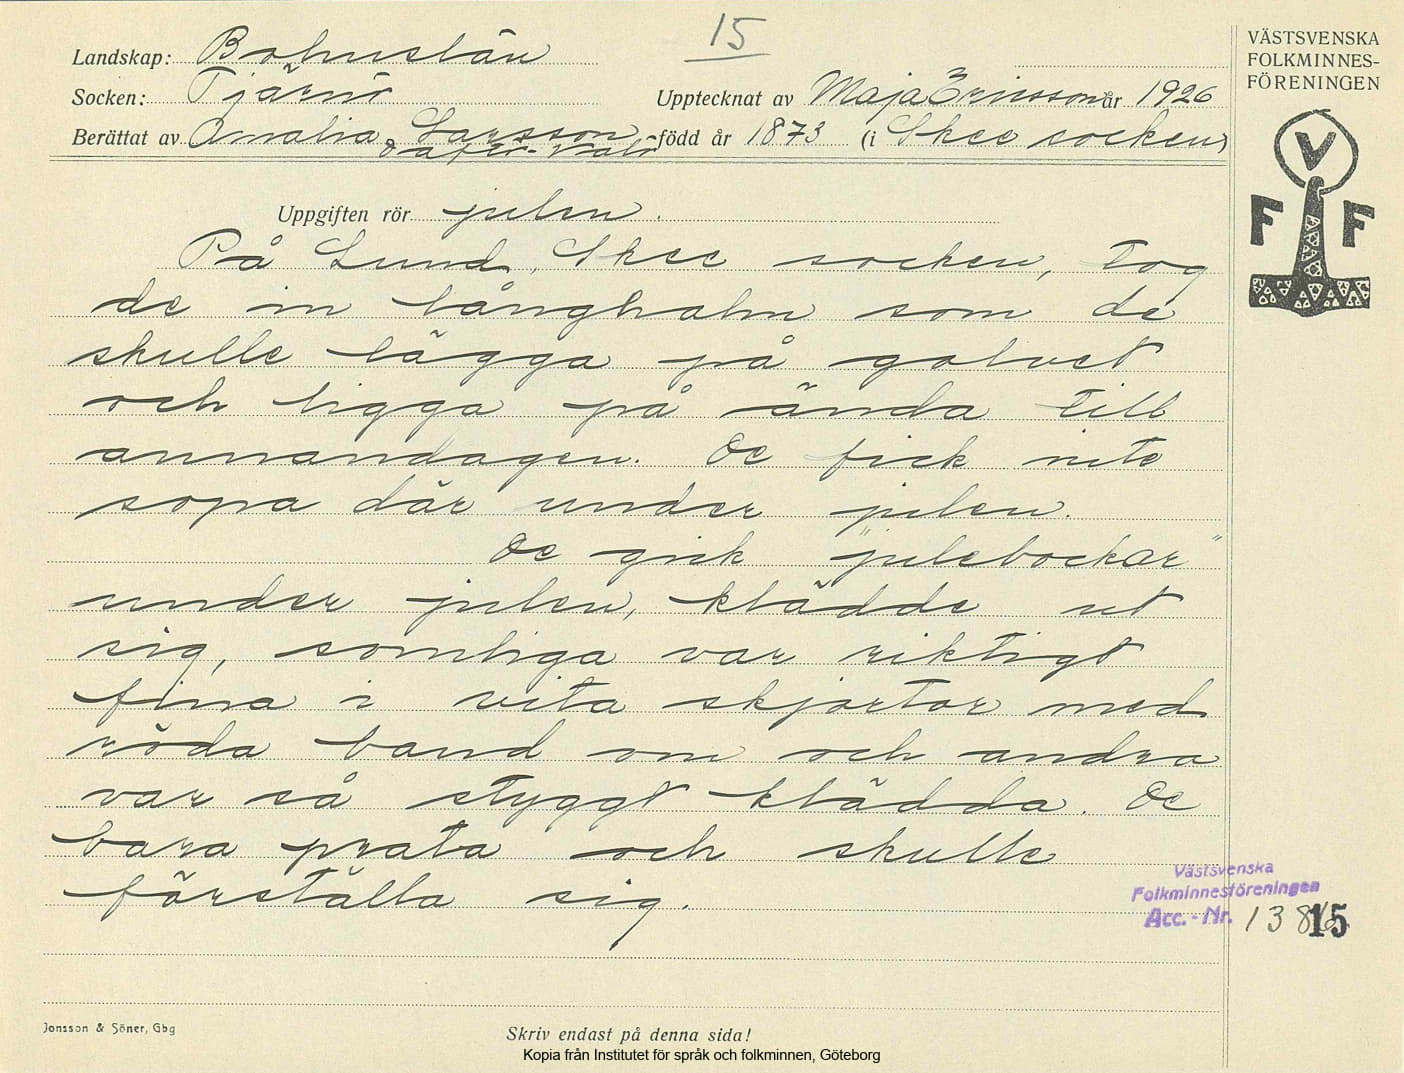 15
VÄSTSVENSKA
FOLKMINNES-
FÖRENINGEN
Landskap: Bohuslän
Socken: Tjärnö
Upptecknat av Maja Ericsson år 1926
Berättat av Amalia Larsson
född år 1873 (i Skee socken)
V
F F
Uppgiften rör julen.
På Lund, Skee socken, tog
de in långhalm som de
skulle lägga på golvet
och ligga på ända till
annandagen. De fick nite
sopa där under julen.
De gick "julebockar"
under julen, klädde ut
sig, somliga var riktigt
fina i vita skjortor med
röda band om och andra
var så styggt klädda. De
bara prata och skulle
förställa sig.
Västsvenska
Folkminnesföreningen
Acc.-Nr. 1386
15
Jonsson & Söner, Gbg
Skriv endast på denna sida!
Kopia från Institutet för språk och folkminnen, Göteborg